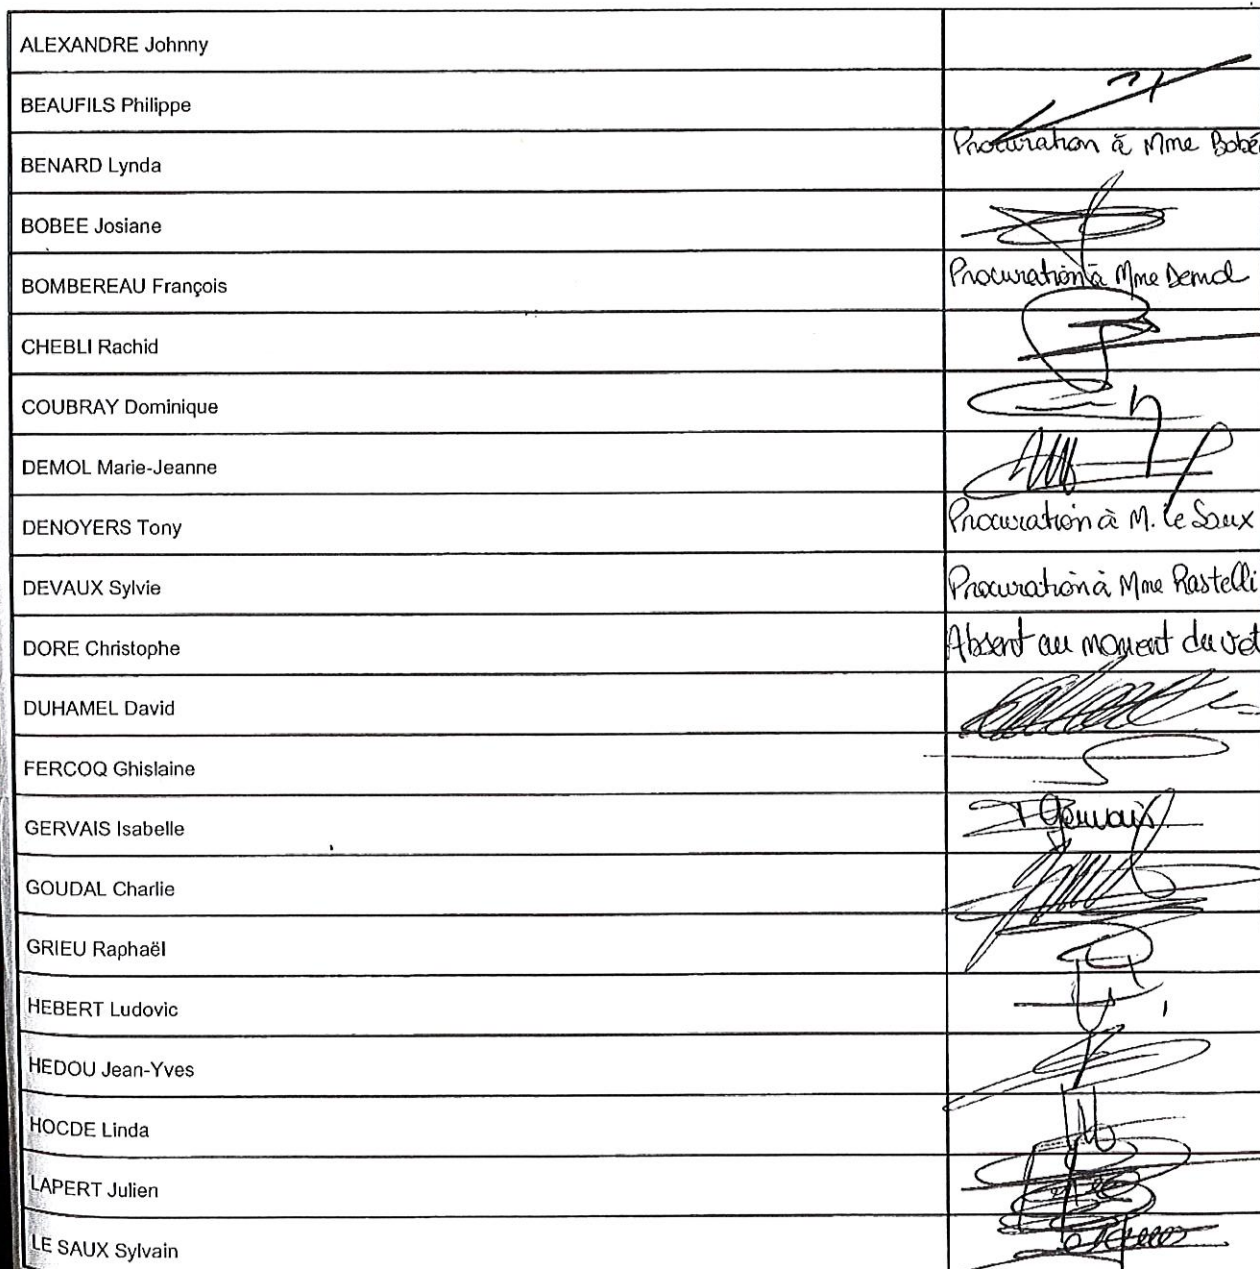 ALEXANDRE Johnny
BEAUFILS Philippe
BENARD Lynda Procuration à Mme Bobé
BOBEE Josiane
BOMBEREAU François Procuration à Mme Demol
CHEBLI Rachid
COUBRAY Dominique
DEMOL Marie-Jeanne
DENOYERS Tony Procuration à M. Le Saux
DEVAUX Sylvie Procuration à Mme Rastelli
DORE Christophe Absent au moment du vot
DUHAMEL David
FERCOQ Ghislaine
GERVAIS Isabelle Gervais
GOUDAL Charlie
GRIEU Raphaël
HEBERT Ludovic
HEDOU Jean-Yves
HOCDE Linda
LAPERT Julien
LE SAUX Sylvain